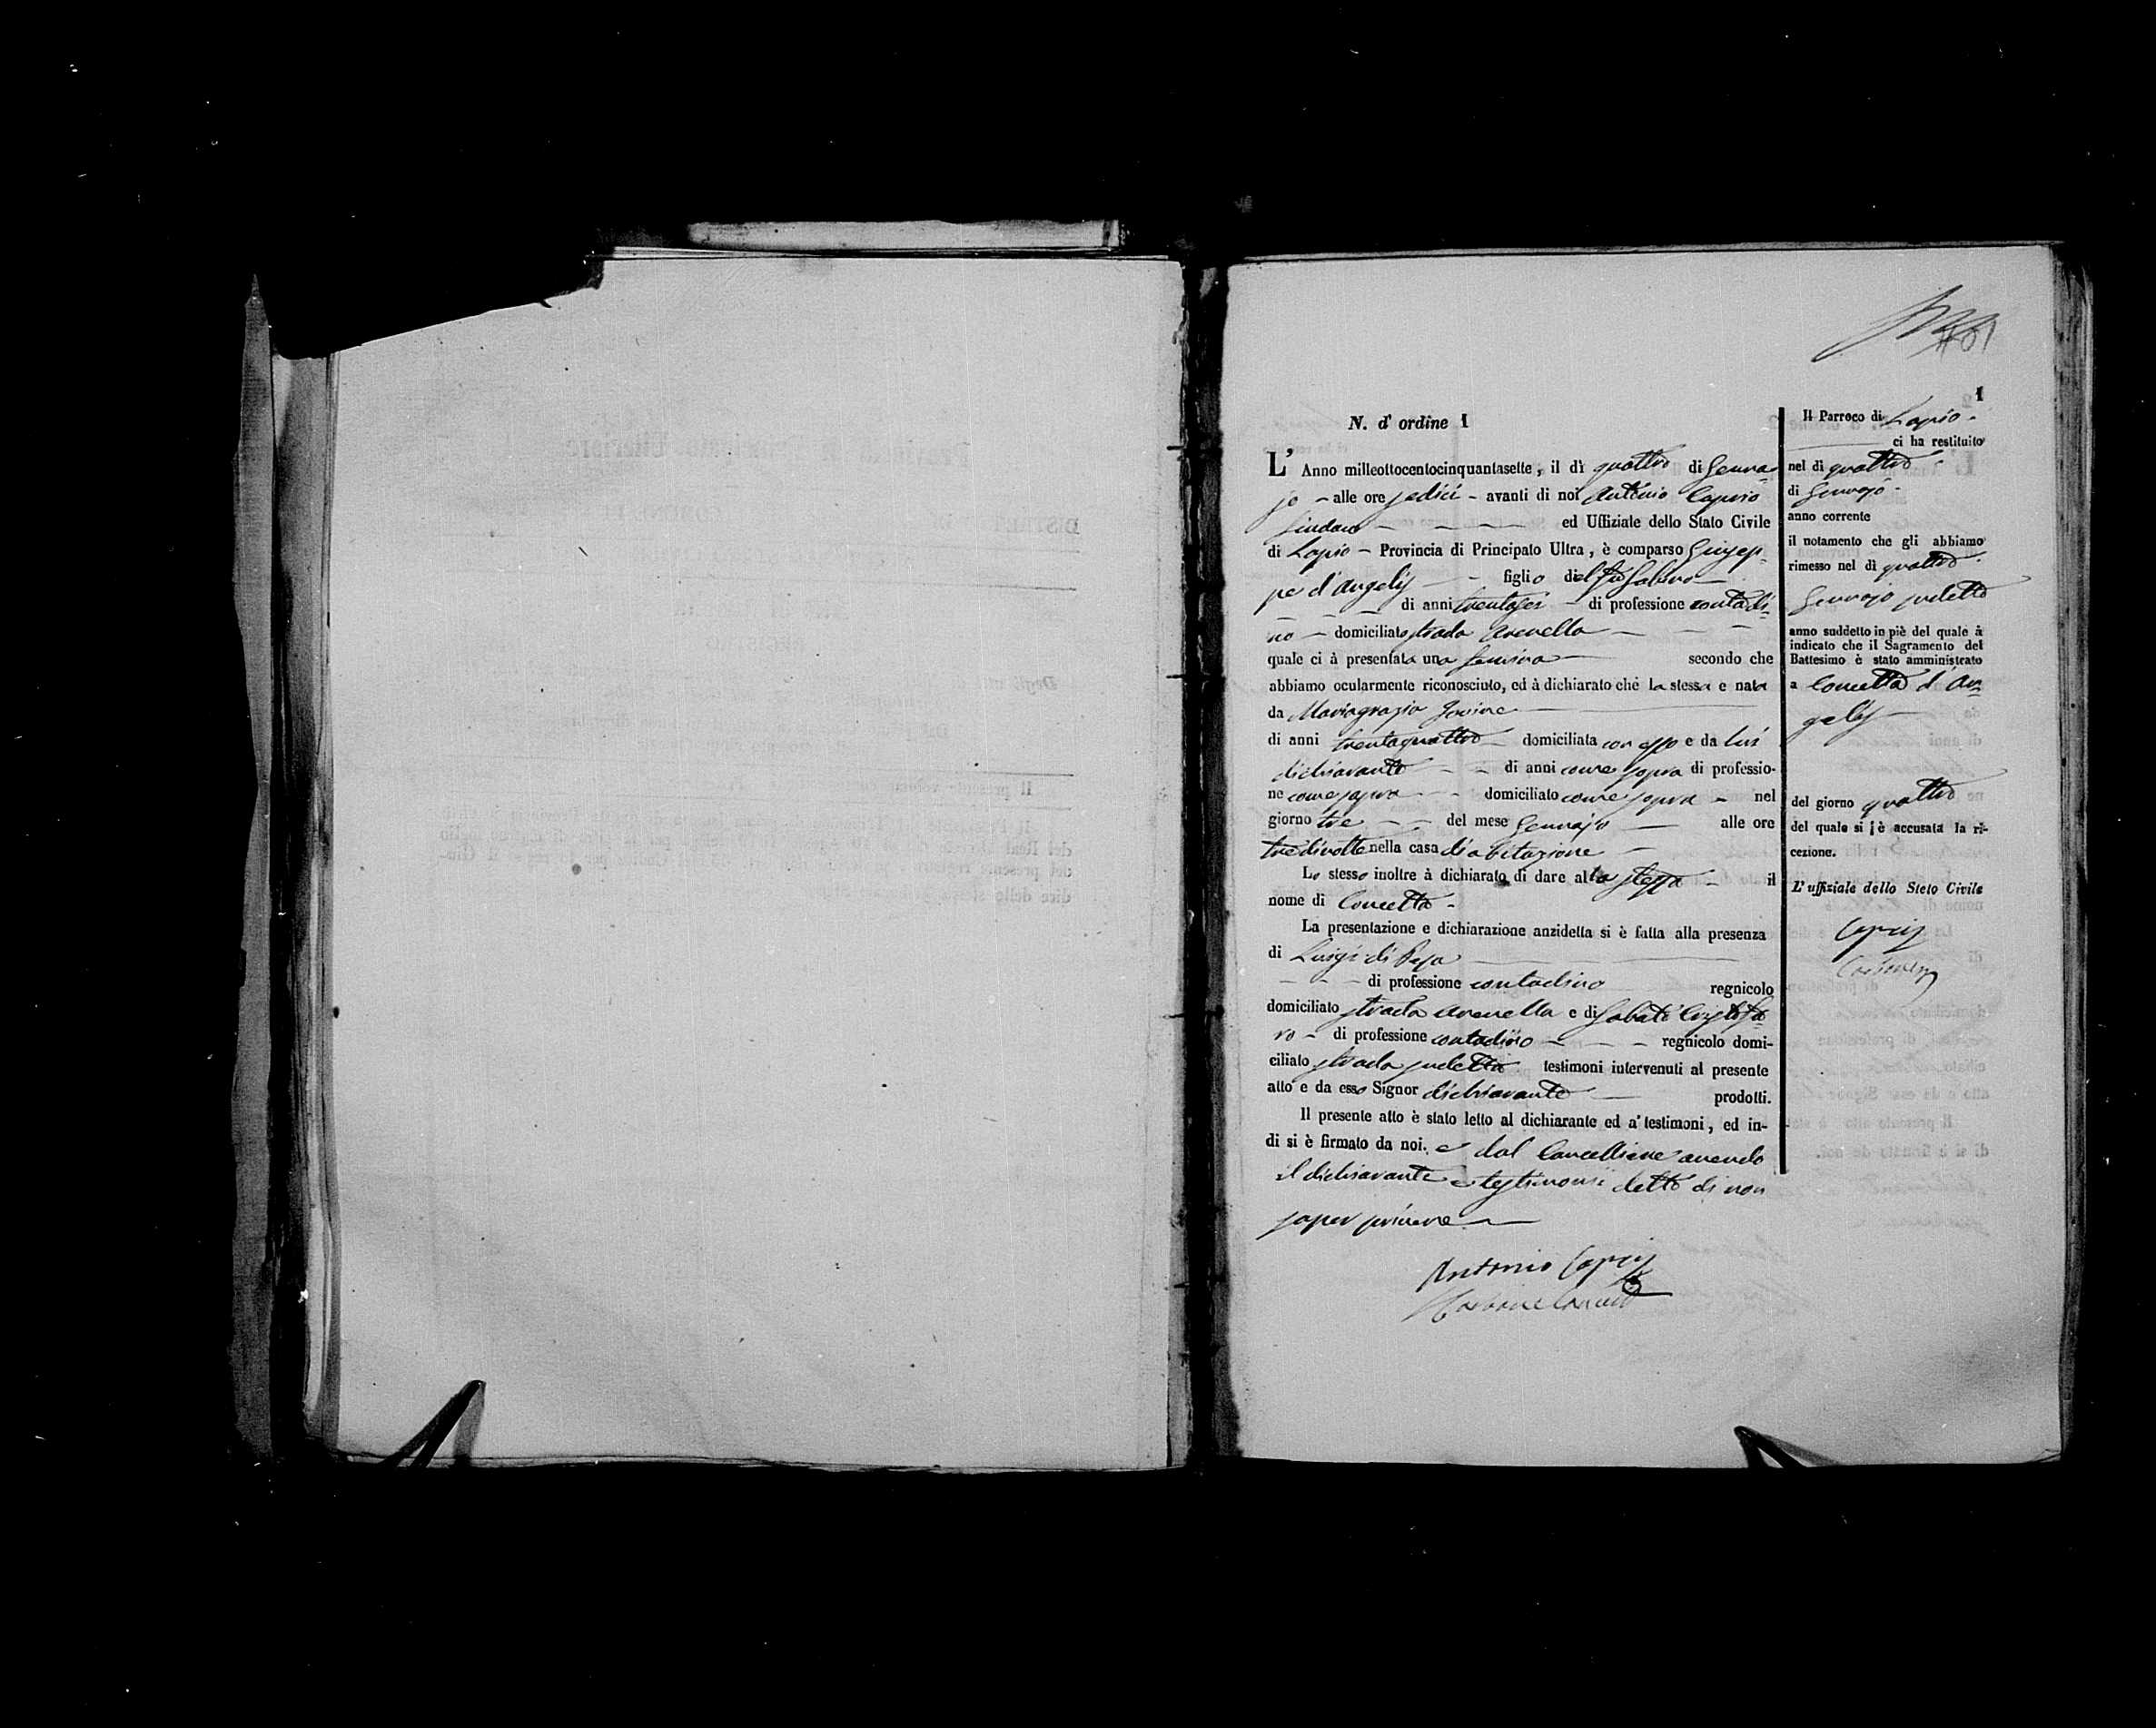 1
N. d' ordine 1
L' Anno milleottocentocinquantasette, il dì quattro di Genna-
jo - alle ore sedici - avanti di noi Antonio Caprio
Sindaco ed Uffiziale dello Stato Civile
di Lapio - Provincia di Principato Ultra, è comparso Giusep-
pe d'Angelis figlio del fu Sabino
di anni trentasei - di professione contadi-
no - domiciliato strada Arenella
quale ci à presentata una femina secondo che
abbiamo ocularmente riconosciuto, ed à dichiarato che la stessa e nata
da Mariagrazia Iovine
di anni trentaquattro domiciliata con esso e da lui
dichiarante di anni come sopra di professio-
ne come sopra domiciliato come sopra - nel
giorno tre del mese Gennajo alle ore
tre di notte nella casa di abitazione
Lo stesso inoltre à dichiarato di dare alla stessa il
nome di Concetta.
La presentazione e dichiarazione anzidetta si è fatta alla presenza
di Luigi di
di professione contadino regnicolo
domiciliato strada Arenella e di Sabato
ro - di professione contadino regnicolo domi-
ciliato strada sudetta testimoni intervenuti al presente
atto e da esso Signor dichiarante prodotti.
Il presente atto è stato letto al dichiarante ed a' testimoni, ed in-
di si è firmato da noi. e dal Cancelliere avendo
il dichiarante e testimonii detto di non
saper scrivere
Antonio Caprio
Il Parroco di Lapio.
ci ha restituito
nel dì quattro
di Gennajo
anno corrente
il notamento che gli abbiamo
rimesso nel dì quattro
Gennajo sudetto
anno suddetto in piè del quale à
indicato che il Sagramento del
Battesimo è stato amministrato
a Concetta d'An-
gelis
del giorno quattro
del quale si è accusata la ri-
cezione.
L'uffiziale dello Stato Civile
Caprio